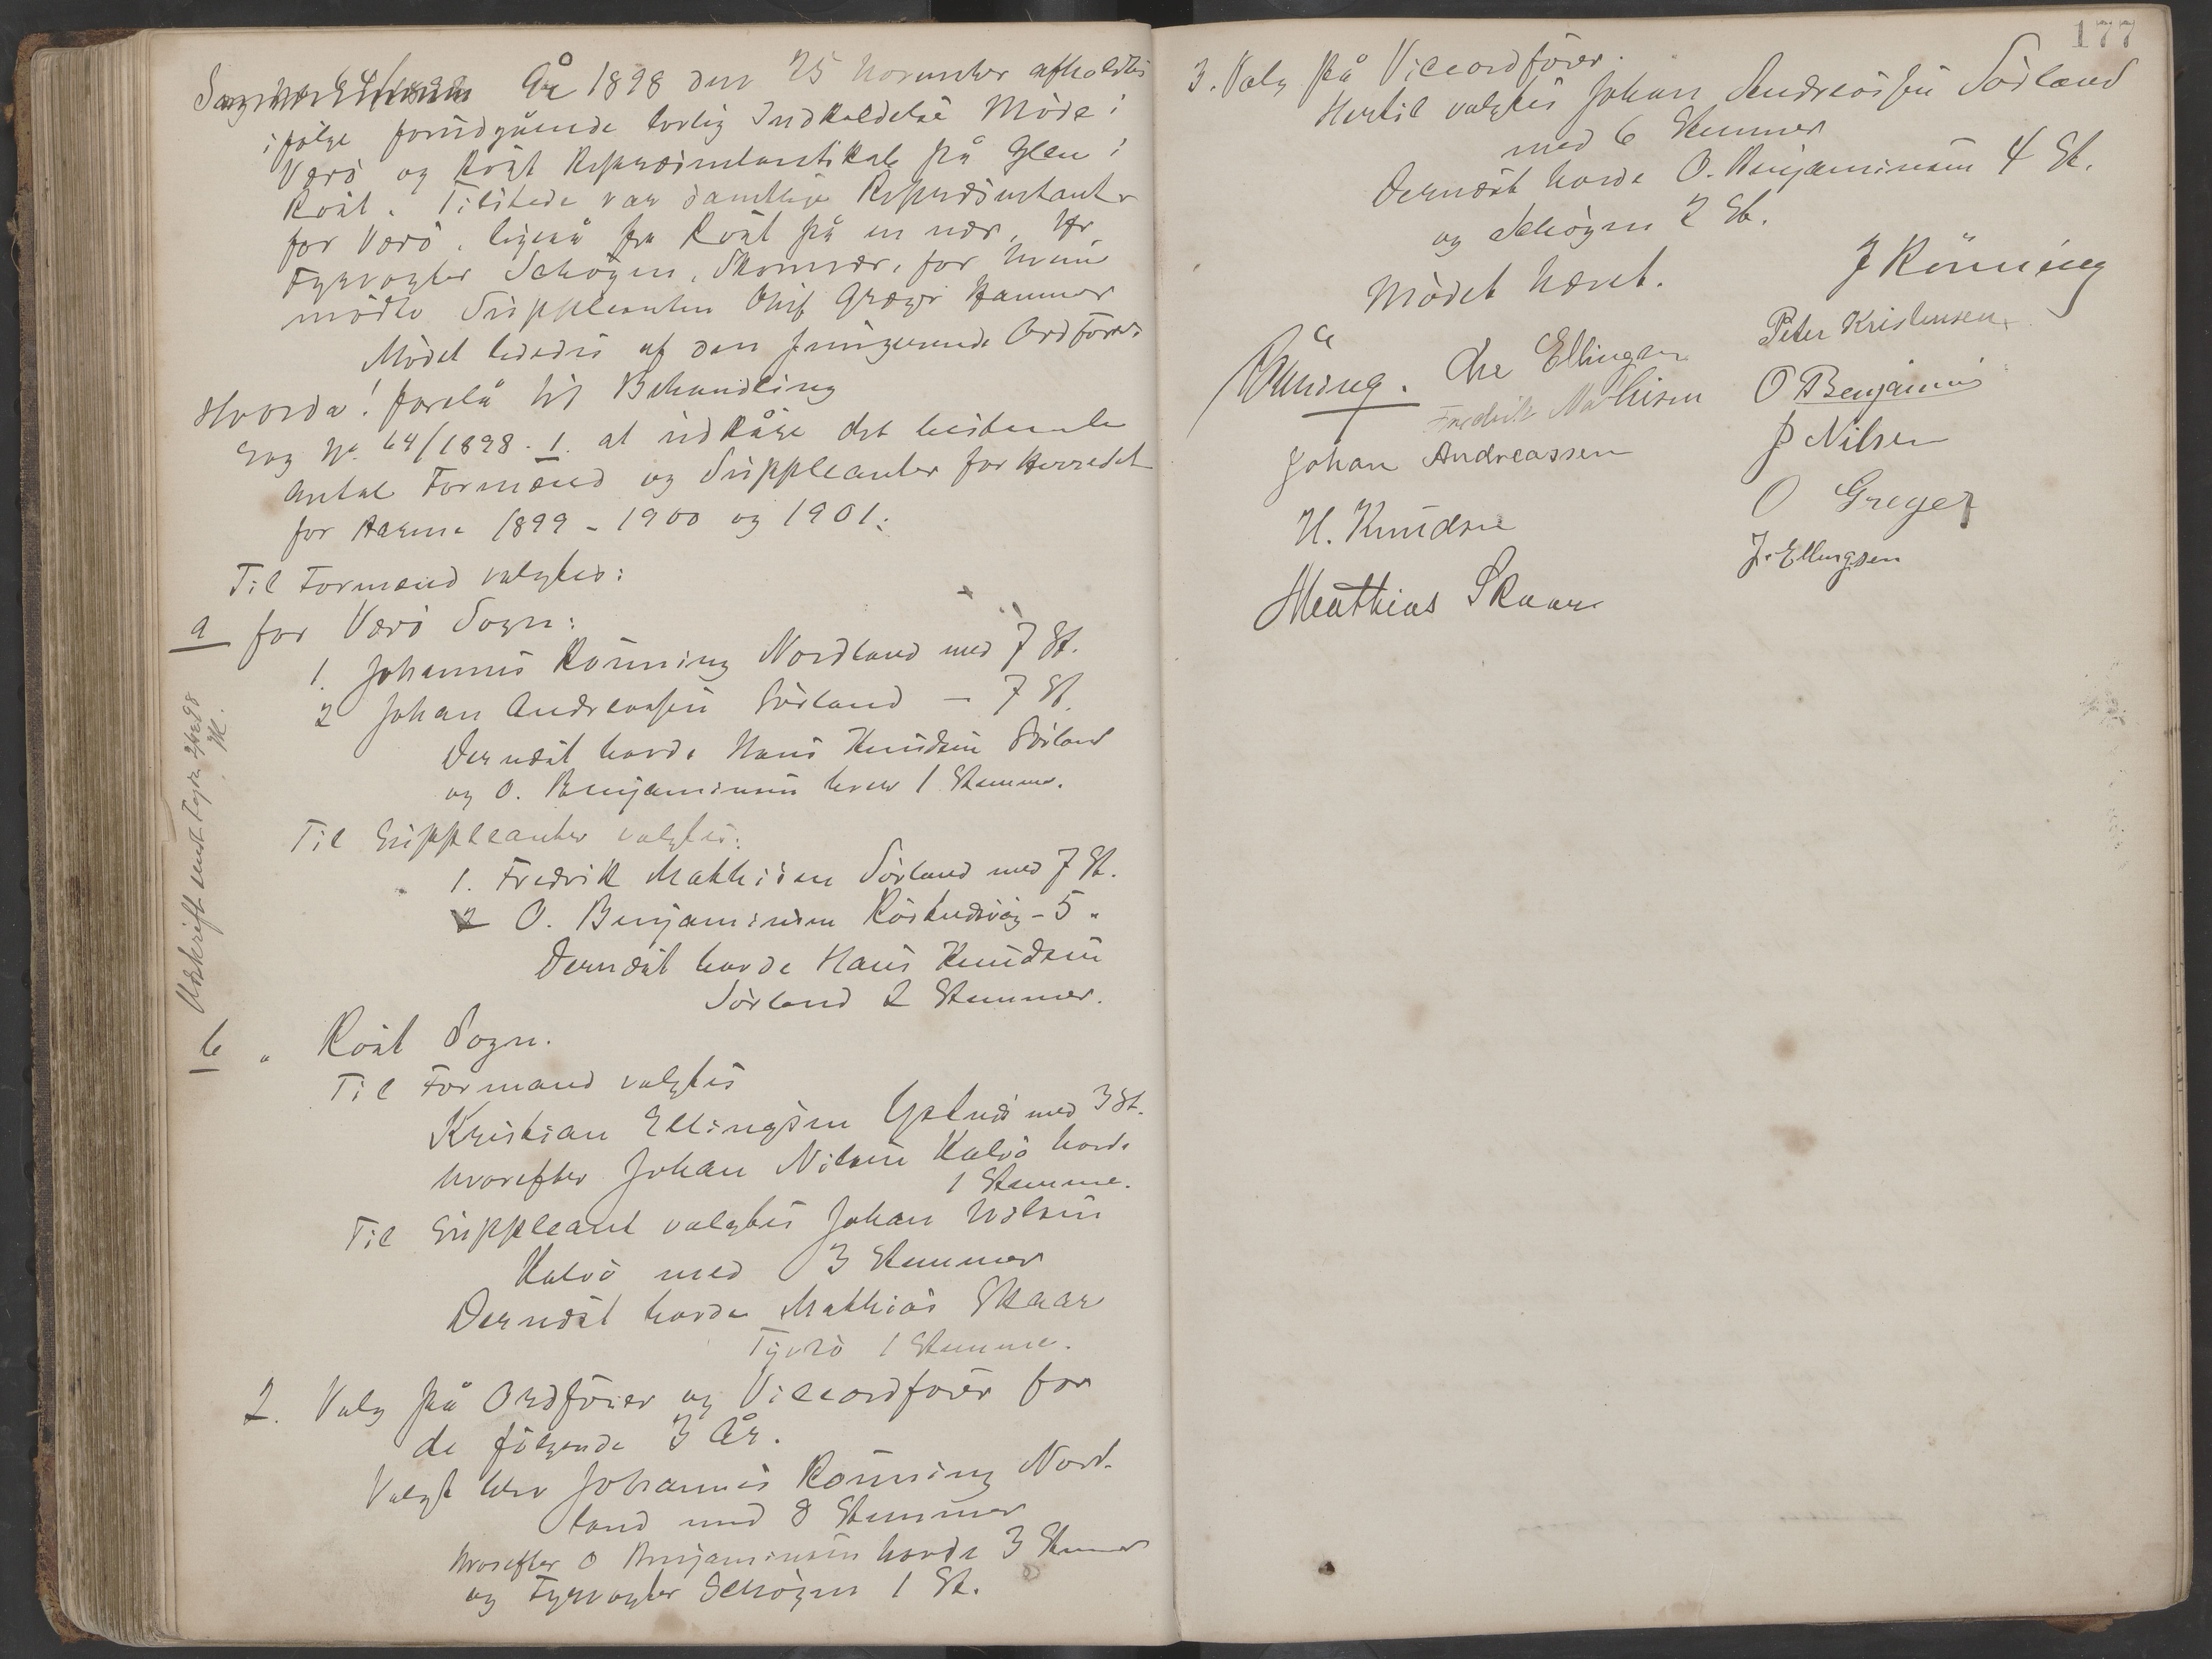 År 1898 den 25 November afholdtes
ifølge forudgående lovlig Indkaldelse Møde i
Værö og Röst Repræsentantskab på Glea i
Röst. Tilstede var samtlige Repræsentanter
for Værö, ligeså fra Röst på en nær, Hr
Fyrvogter Schøgen, Skomvær, for hvem
mødte Suppleanten Oluf Greger Hammer
Mødet lededes af den fungerende Ordfører
Hvorda! forelå til Behandling
Sag No. 64/1898. 1. at udkåre det bestemte
Antal Formænd og Suppleanter for Herredet
for Aarene 1899 - 1900 og 1901:
Til Formænd valgtes:
a for Værö Sogn:
1. Johannes Rönning Nordland med 7 St.
2 Johan Andreassen Sörland - 7 St.
Dernæst havde Hans Knudsen Sörland
og O. Benjaminsen hver 1 Stemme.
Til Suppleanter valgtes:
1. Fredrik Mathisen Sörland med 7 St.
2 O. Benjaminsen Röstnesvåg - 5 "
Dernæst havde Hans Knudsen
Sörland 2 Stemmer.
Udskrift sendt Fogden 98
b " Röst Sogn.
Til Formand valgtes
Kristian Ellingsen Ystnes med 3 St.
hvorefter Johan Nilsen Kalvö havde
1 Stemme.
Til Suppleant valgtes Johan Nilsen
Kalvö med 3 Stemmer
Dernæst havde Mathias Skaar
Tyvsö 1 Stemme.
2. Valg på Ordförer og Viceordförer for
de følgende 3 År.
Valgt blev Johannes Rönning Nord-
land med 8 Stemmer
hvorefter O Benjaminsen havde 3 Stemmer
og Fyrvogter Schøgen 1 St.
177
3. Valg på Viceordförer.
Hertil valgtes Johan Andreassen Sörland
med 6 Stemmer
Dernæst havde O. Benjaminsen 4 St.
og Schøgen 2 St.
Mödet hævet.
J Rönning
Chr Ellingsen
Peter Kristensen
Fredrik Mathisen
O Benjamins
Johan Andreassen
J Nilsen
H. Knudsen
O Greger
J. Ellingsen
Matthias Skaar